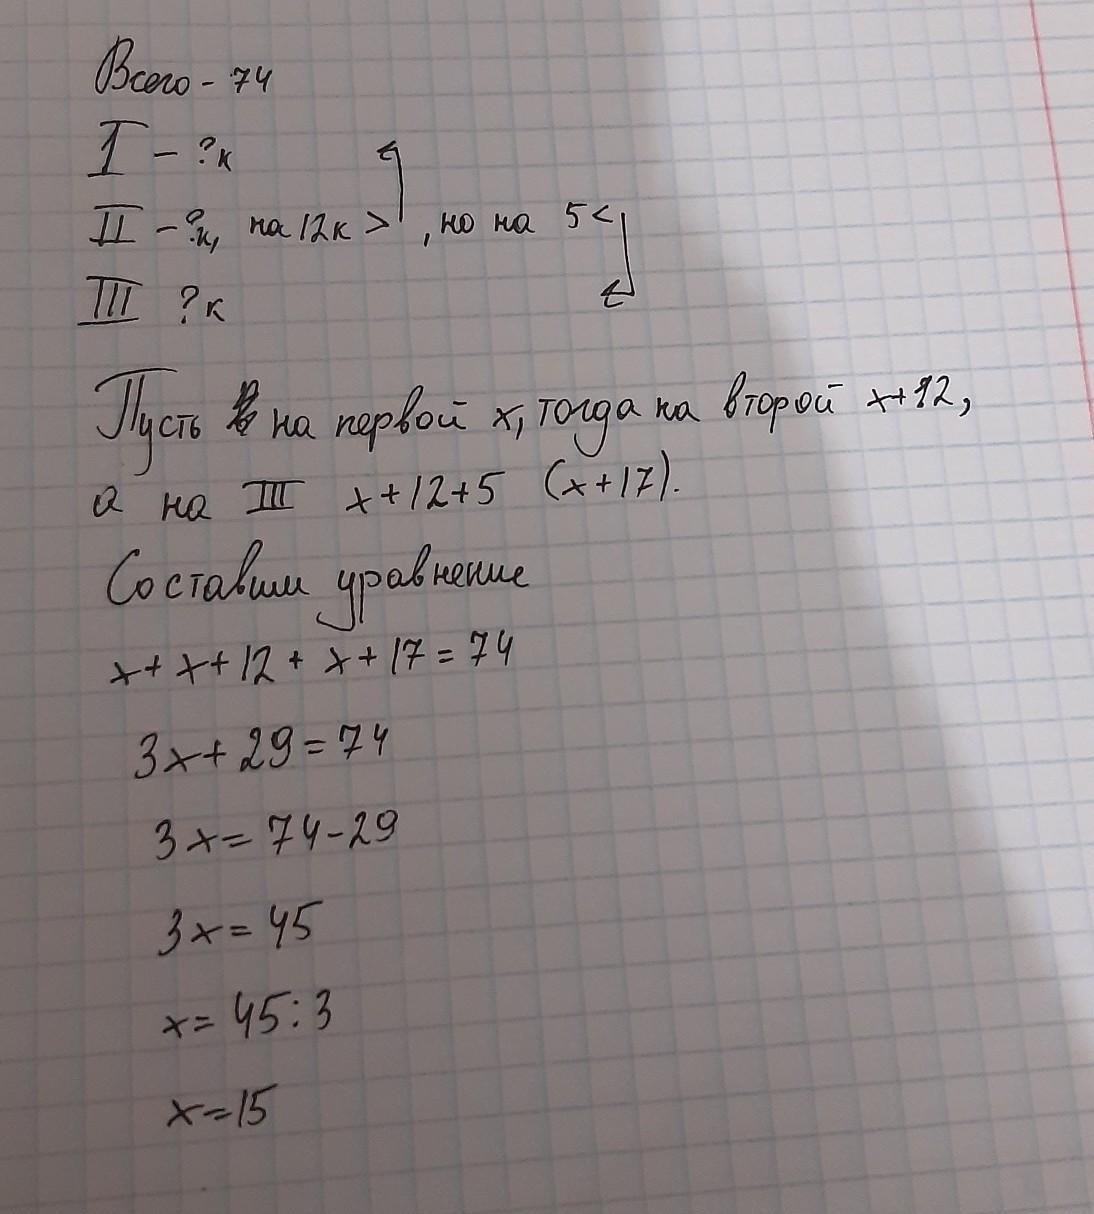 Всего - 74
I - ?к
II - ?к, на 12к > , но на 5 <
III ?к
Пусть на первой x, тогда на второй x+12,
а на III x+12+5 (x+17).
Составим уравнение
x+x+12+x+17=74
3x+29=74
3x=74-29
3x=45
x=45:3
x=15